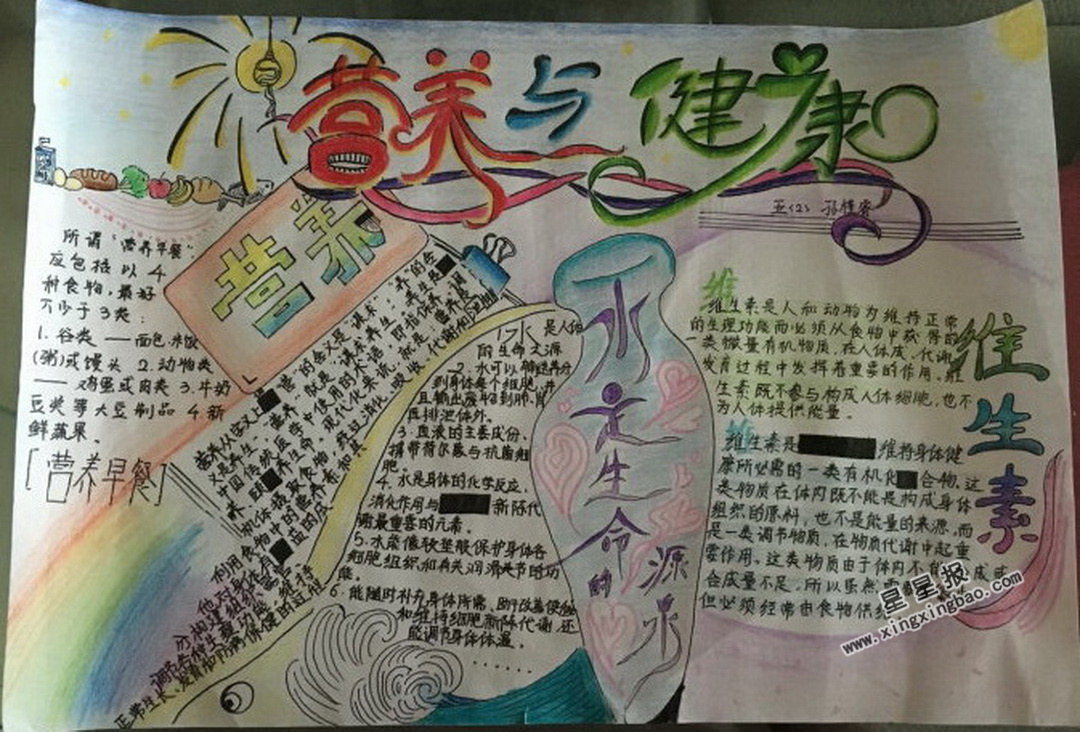 营养与健康
五(2)
营养
所谓“营养早餐”
应包括以4
种食物,最好
不少于3类:
1.谷类——面包米饭
(粥)或馒头 2.动物类
——鸡蛋或肉类 3.牛奶
豆浆等大豆制品 4.新
鲜蔬果。
[营养早餐]
营养从字义上
养的含义是
又是养生。“营养”就是
中国传统医学中使用的术语
机体摄取食物,经过消化、吸收、代谢和
利用食物中的营养素和其
他对身体有益的成
分构建组织器官、
调节各种生理功能,维持
正常生长、发育和防病保健的过程
1.水 是人体
的生命之源
2.水可以输送养分
到身体每个细胞,并
且输出废物到肺、肾
且排泄体外。
3.血液的主要成份、
携带荷尔蒙与抗菌细
胞。
4.水是身体的化学反应,
消化作用与 新陈代
谢最重要的元素。
5.水能像软垫般保护身体各
细胞组织和有关润滑关节的功
能。
6.能随时补充身体所需、助于改善便秘
和维持细胞新陈代谢,还
能调节身体体温。
......
水是生命的源泉
维生素
维生素是人和动物为维持正常
的生理功能而必须从食物中获得的
一类微量有机物质,在人体成、代谢
发育过程中发挥着重要的作用。维
生素既不参与构成人体细胞,也不
为人体提供能量。
维生素是 维持身体健
康所必需的一类有机化合物。这
类物质在体内既不能是构成身体
组织的原料,也不是能量的来源,而
是一类调节物质,在物质代谢中起重
要作用。这类物质由于体内不能合成或
合成量不足,所以虽然需
但必须经常由食物供给
星星报
www.xingxingbao.com